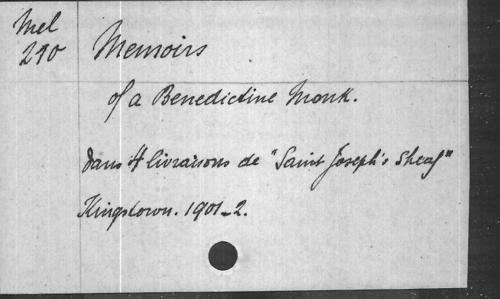 Mel
290
Memoirs
of a Benedictine Monk.
dans 4 livraisons de "Saint Joseph's Sheaf"
Kingstown. 1901-2.